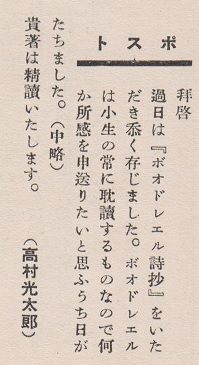 ポスト
拜啓
過日は『ボオドレエル詩抄』をいた
だき忝く存じました。ボオドレエル
は小生の常に耽讀するものなので何
か所感を申送りたいと思ふうち日が
たちました。（中略）
貴著は精讀いたします。
（高村光太郎）